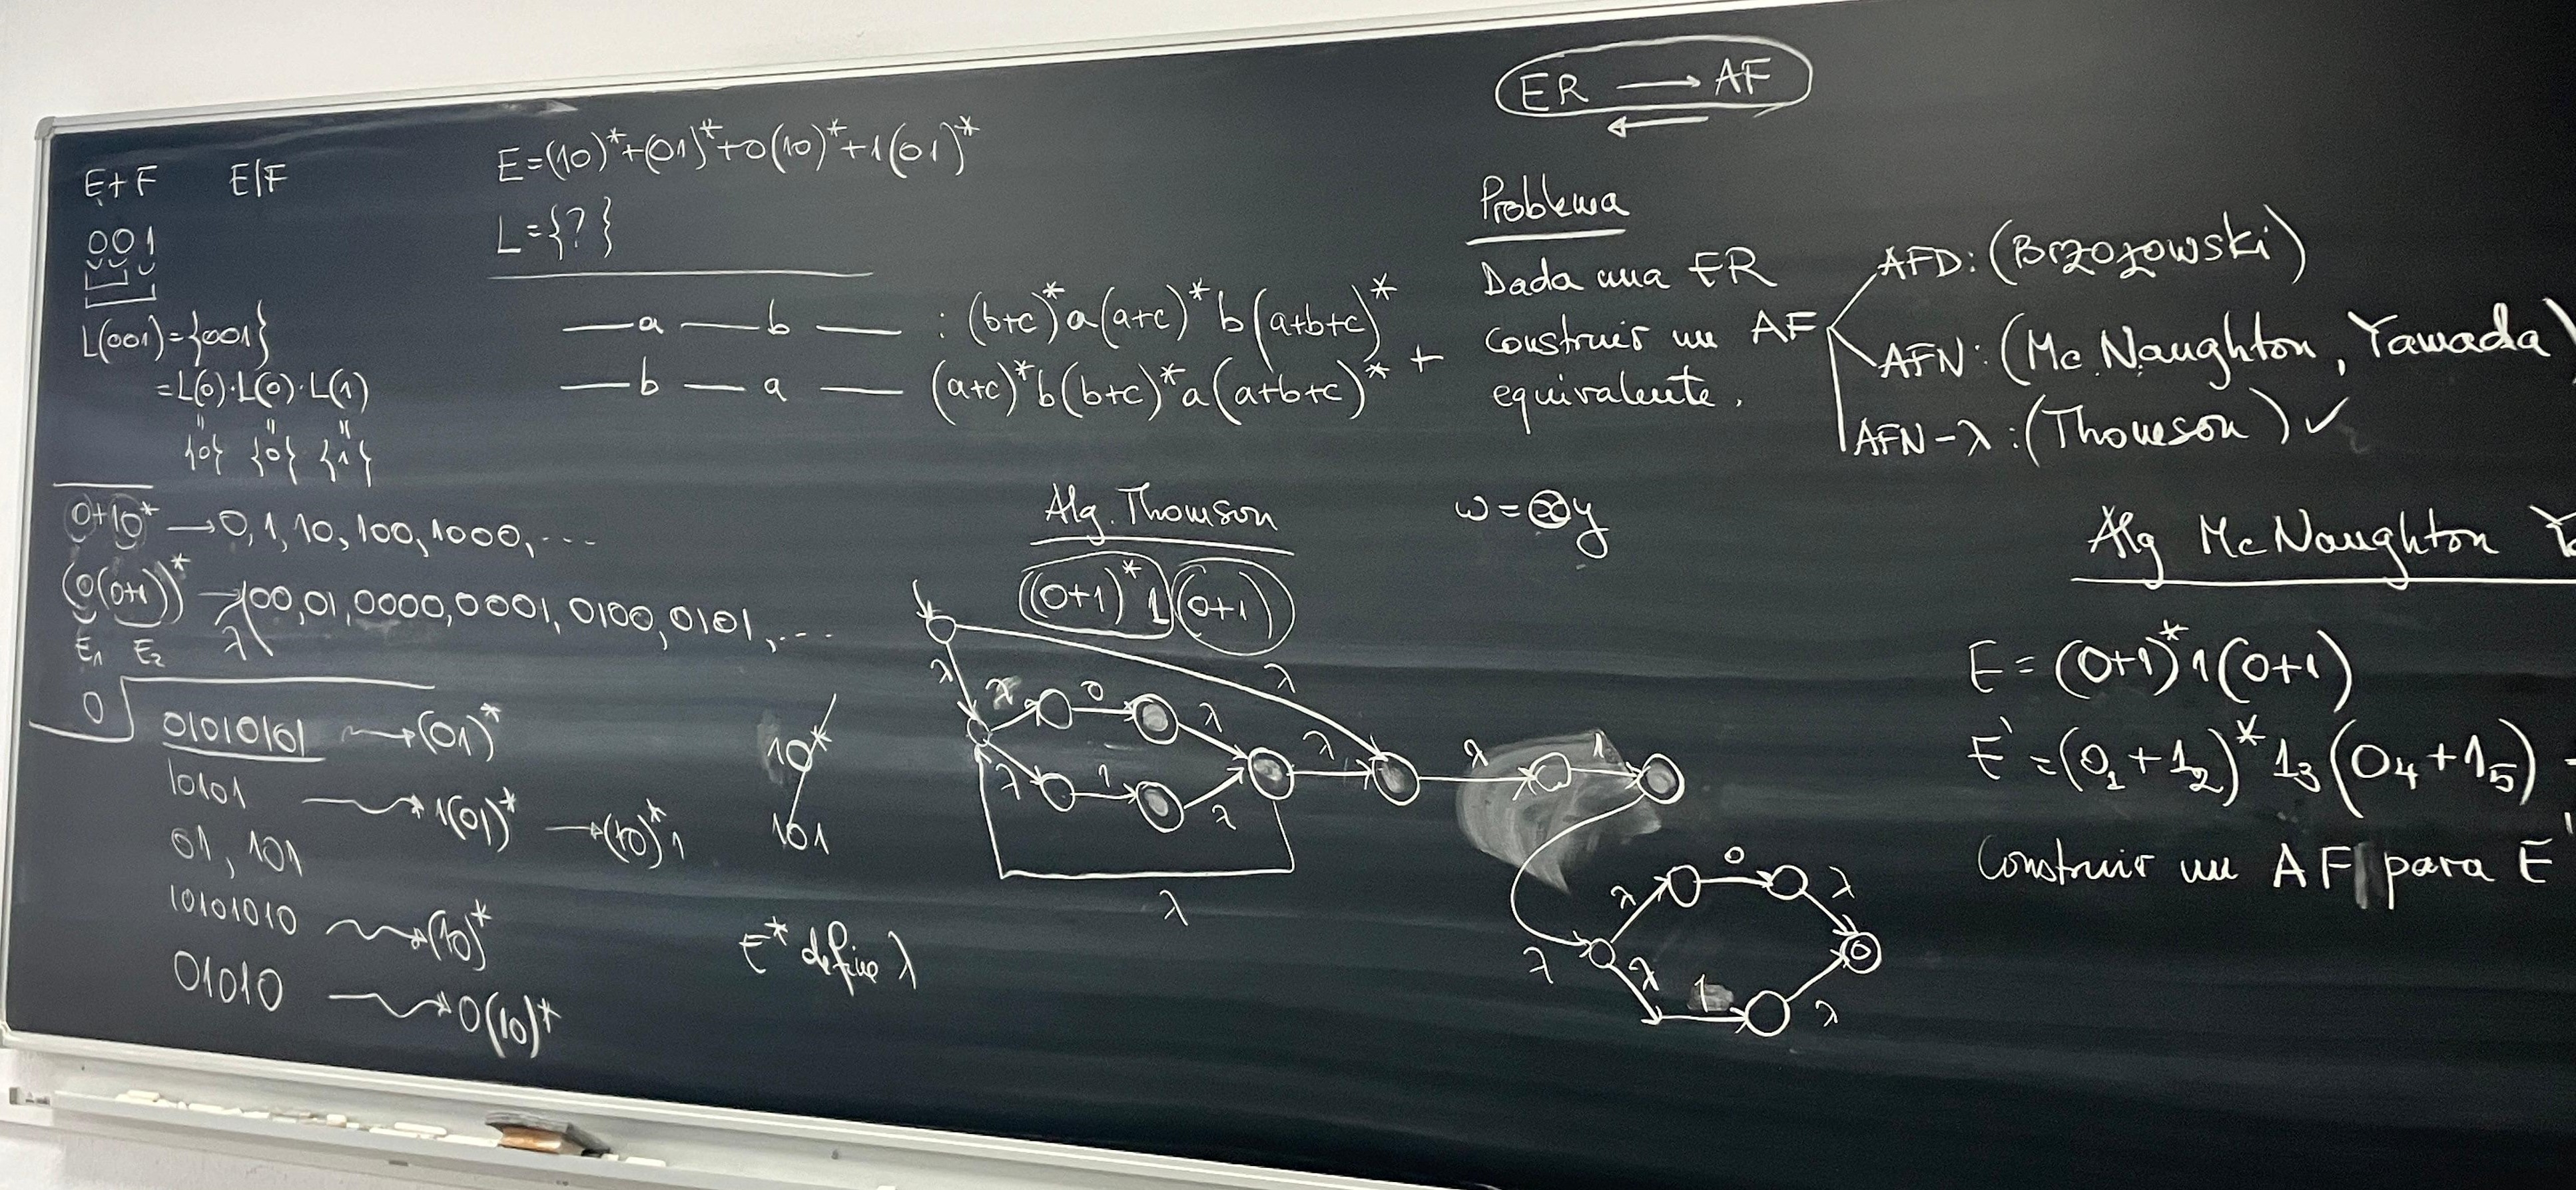 E+F E|F
001
L(001)={001}
=L(0)·L(0)·L(1)
" " "
{0} {0} {1}
0+10* → 0, 1, 10, 100, 1000, ...
(0(0+1))* → 00, 01, 0000, 0001, 0100, 0101, ...
E1 E2 λ
0
01010101 → (01)*
10101 → 1(01)* → (10)*1
01, 101
10101010 → (10)*
01010 → 0(10)*
10*
101
E* define λ
E=(10)*+(01)*+0(10)*+1(01)*
L={?}
—a—b— : (b+c)*a(a+c)*b(a+b+c)* +
—b—a— (a+c)*b(b+c)*a(a+b+c)*
Alg. Thomson
(0+1)*1(0+1)
λ λ
λ 0 λ
λ 1 λ
λ λ 1
λ
λ 0 λ
λ λ 1 λ
ER → AF
←
Problema
Dada una ER
construir un AF
equivalente.
AFD: (Brzozowski)
AFN: (Mc Naughton, Yamada)
AFN-λ: (Thomson) ✓
Alg McNaughton
E = (0+1)*1(0+1)
E' = (0₁+1₂)*1₃(0₄+1₅)
Construir un AF para E'